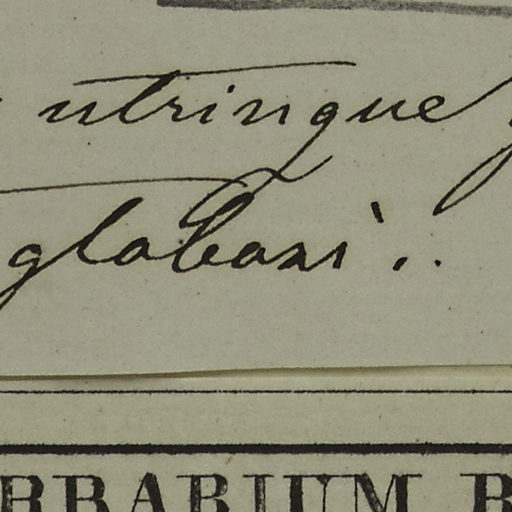 utringue
glabaxi..
RBARIUM